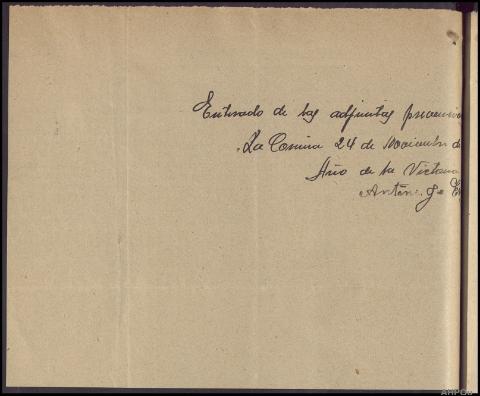 Enterado de las adjuntas
La Coruña 24 de Noviembre de
Año de la Victoria
Antonio
AHPOU